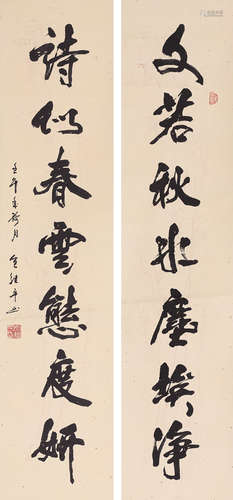 文若秋水塵埃淨
詩似春雲態度妍
壬午年荷月